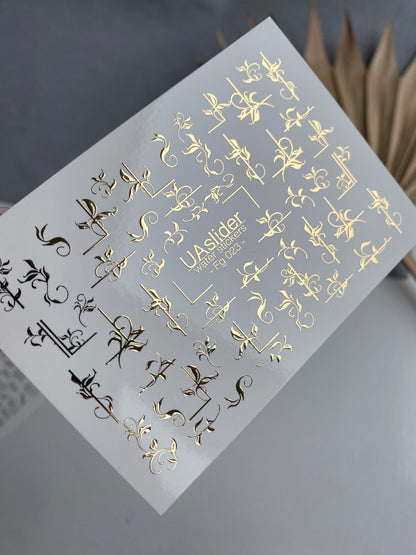 UAslider
water stickers
Fg 023